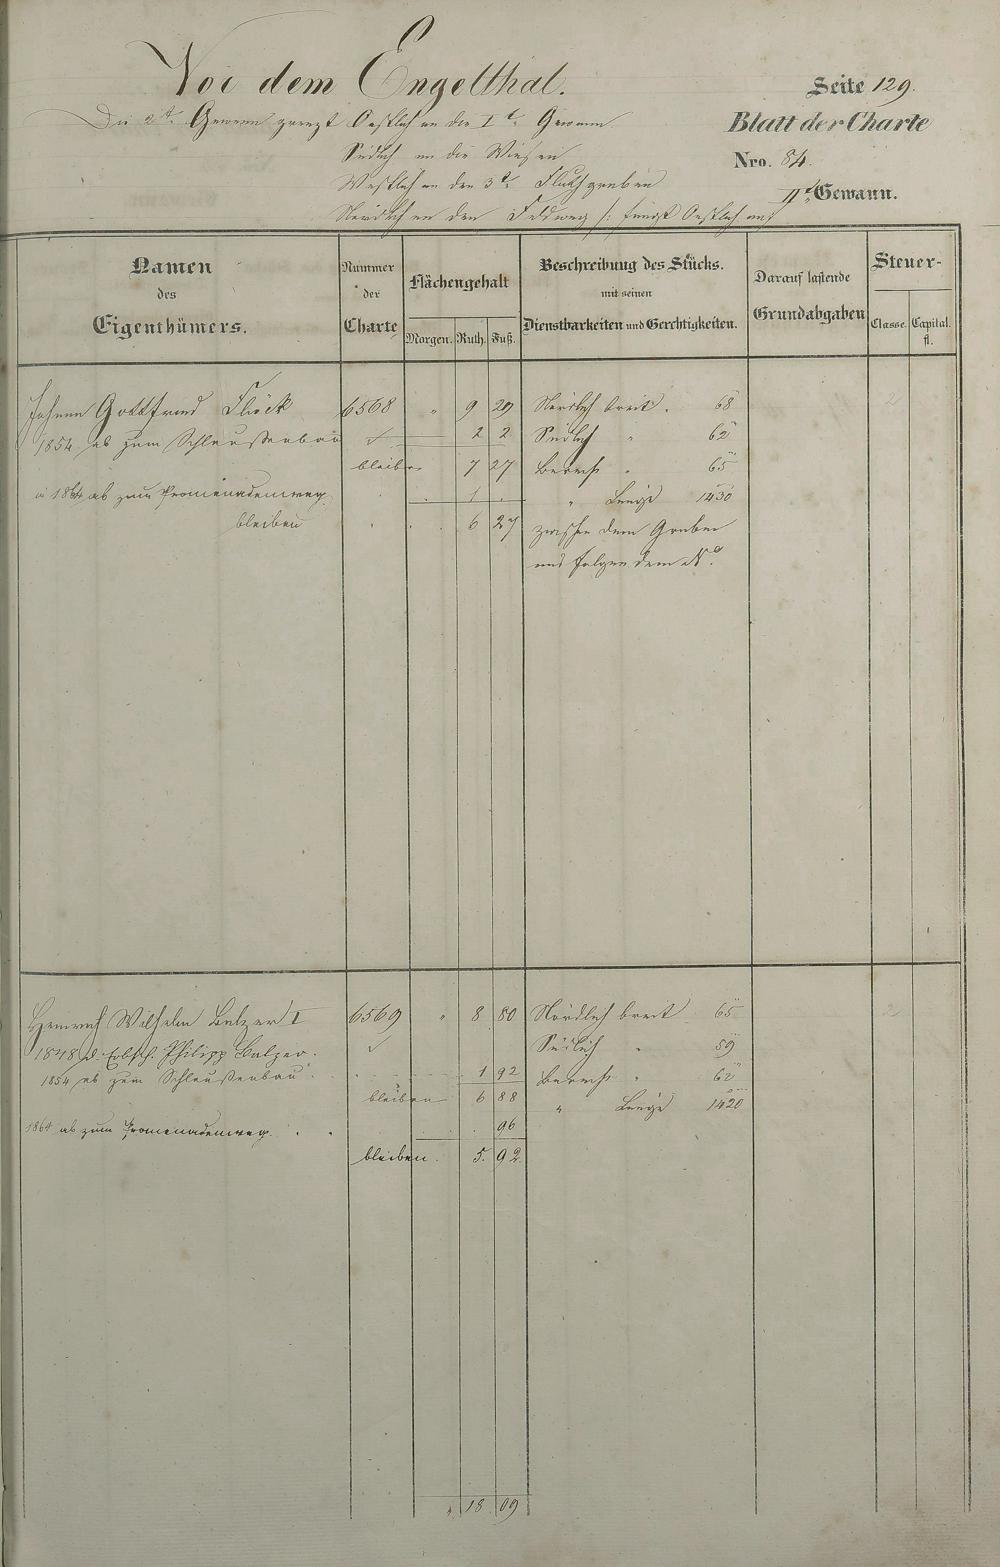 Vor dem Engelthal.
Seite 129.
Die 2te Gewann grenzt Oestlich an die Ite Gewann
Blatt der Charte
Südlich an die Wiesen
Nro. 84.
Westlich an den 3te Fluthgraben
IIte Gewann.
Nördlich an den Feldweg /: fängt Oestlich an
Namen des Eigenthümers.
Nummer der Charte
Flächengehalt
Morgen. Ruth. Fuß.
Beschreibung des Stücks. mit seinen Dienstbarkeiten und Gerechtigkeiten.
Darauf lastende Grundabgaben
Steuer-
Classe. Capital. fl.
Johann Gottfried Flöck 6568 " 9 29 Nördlich breit. 68
1854 ab zum Schleußenbau 2 2 Südlich " 62
bleiben 7 27 Berechn " 65
in 1864 ab zum Promenadenweg. 1 . " Länge 1430
bleiben 6 27 zwischen dem Graben
und folgendem No
Heinrich Wilhelm Balzer I 6569 " 8 80 Nördlich breit 65
1848 d. Erbsch. Philipp Balzer. Südlich " 59
1854 ab zum Schleußenbau 1 92 Berechn " 62
bleiben 6 88 " Länge 1420
1864 ab zum Promenadenweg. 96
bleiben. 5. 92.
" 18 09